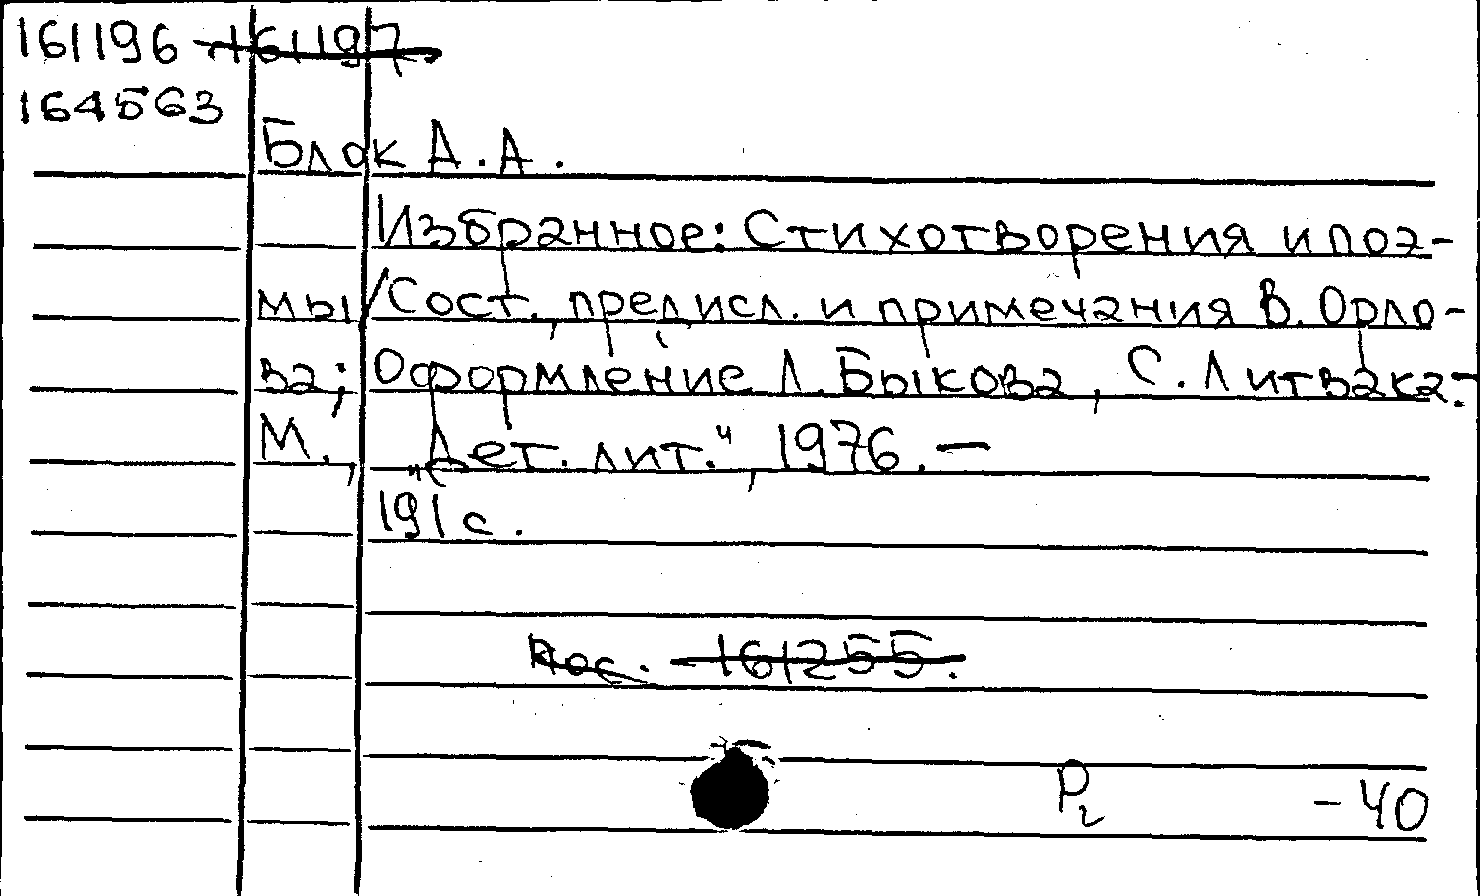 161196 161197
164563
Блок А.А.
Избранное: Стихотворения и поэ-
мы/Сост., предисл. и примечания В. Орло-
ва; Оформление Л. Быкова, С. Литвака.-
М., „Дет. лит.", 1976. —
191 с.
161255.
Р2 -40